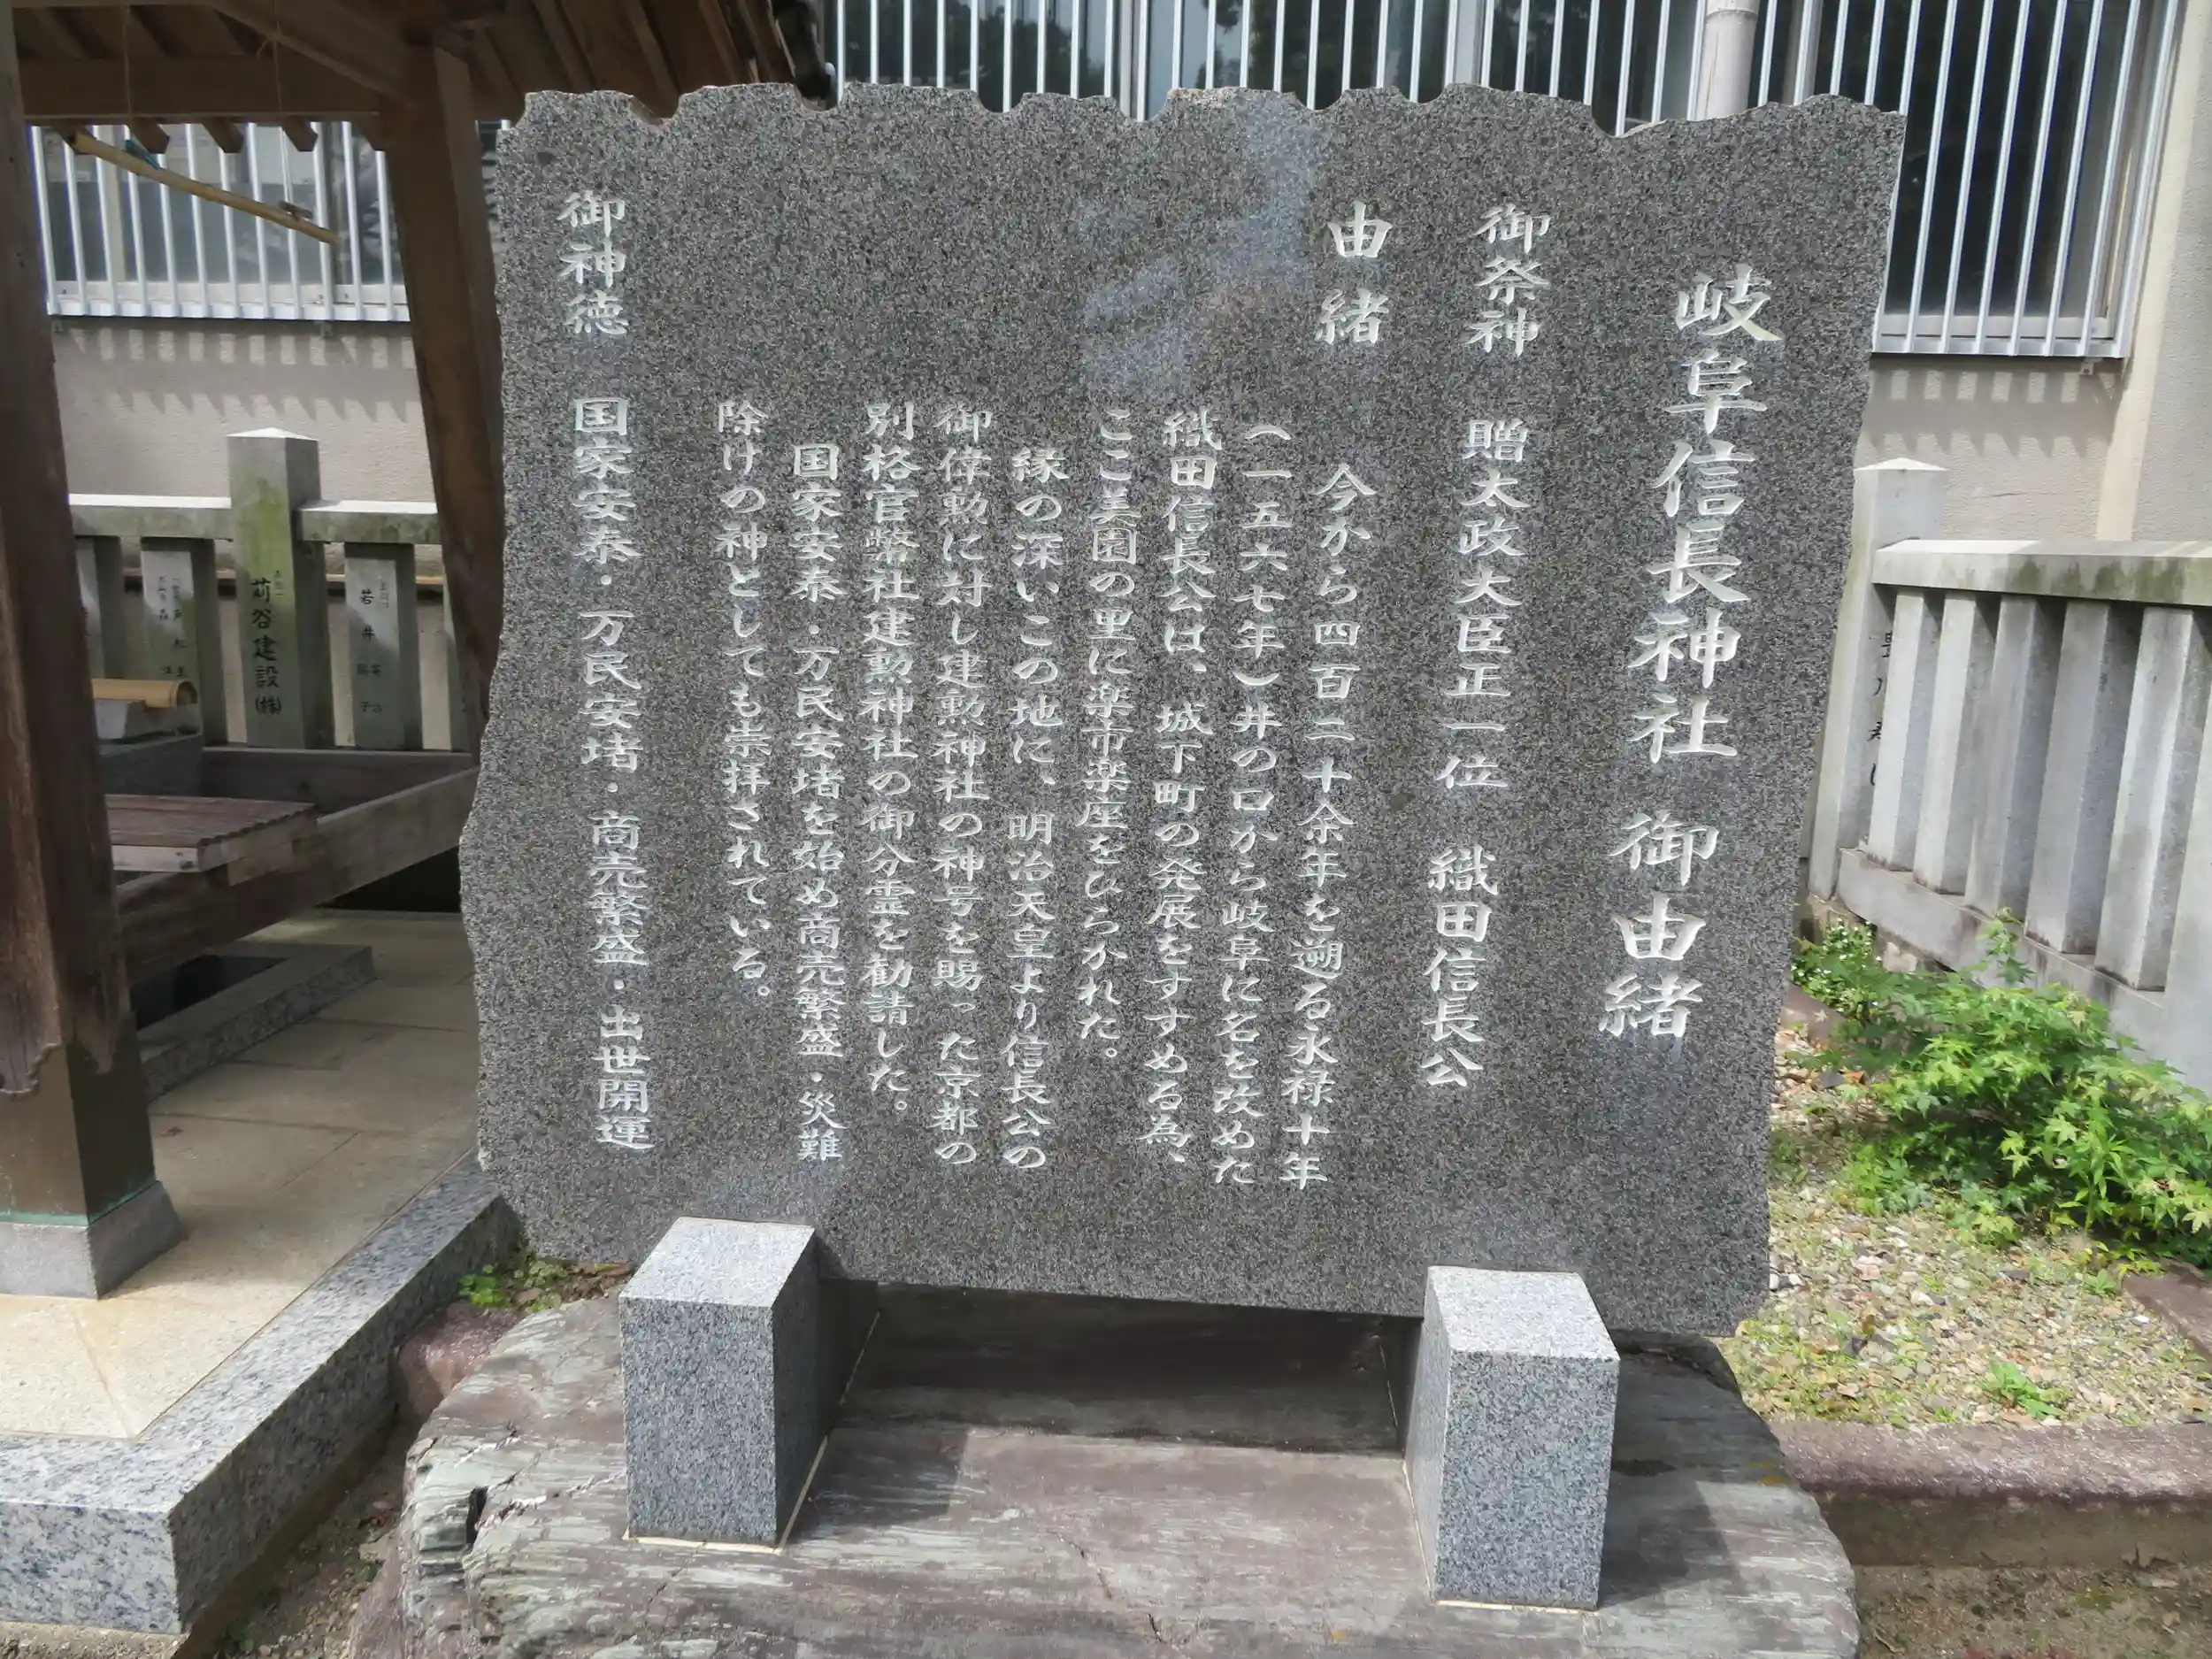 岐阜信長神社 御由緒
御祭神 贈太政大臣正一位 織田信長公
由緒 今から四百二十余年を遡る永禄十年
（一五六七年）井の口から岐阜に名を改めた
織田信長公は、城下町の発展をすすめる為、
ここ美園の里に楽市楽座をひらかれた。
縁の深いこの地に、明治天皇より信長公の
御偉勲に対し建勲神社の神号を賜った京都の
別格官幣社建勲神社の御分霊を勧請した。
国家安泰・万民安堵を始め商売繁盛・災難
除けの神としても崇拝されている。
御神徳 国家安泰・万民安堵・商売繁盛・出世開運
若井
苅谷建設(株)